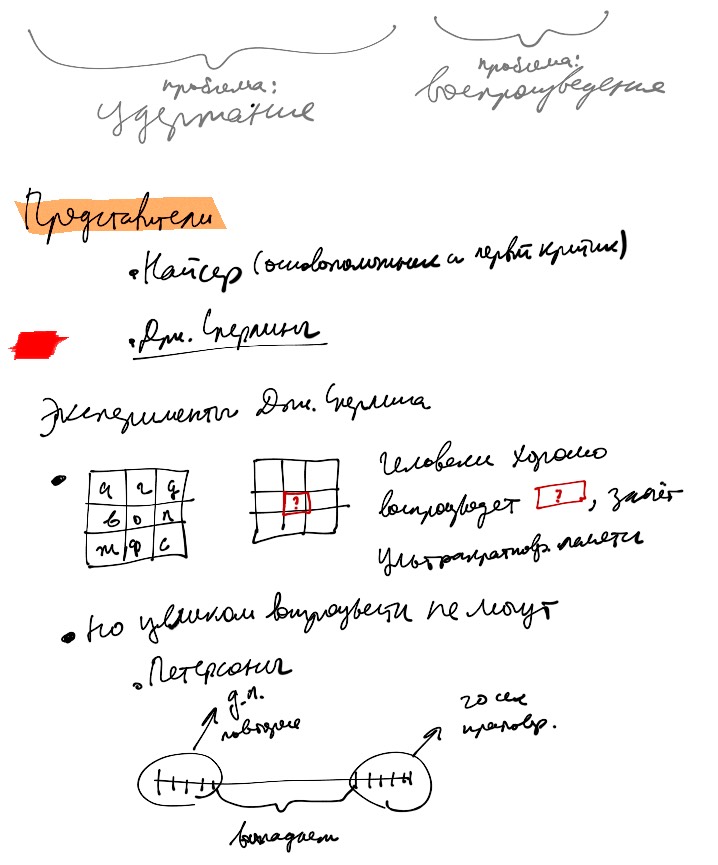 проблема:
удержание
проблема:
воспроизведения
Представители
• Найсер (основоположник и первый критик)
• Дж. Сперлинг
Эксперименты Дж. Сперлинга
а г д
в о п
ж ф с
?
Человек хорошо
воспроизведет ? , за счёт
ультракратковр. памяти
• Но целиком воспроизвести не могут
• Петерсоны
д.п.
повторие
20 сек
кратковр.
выпадает